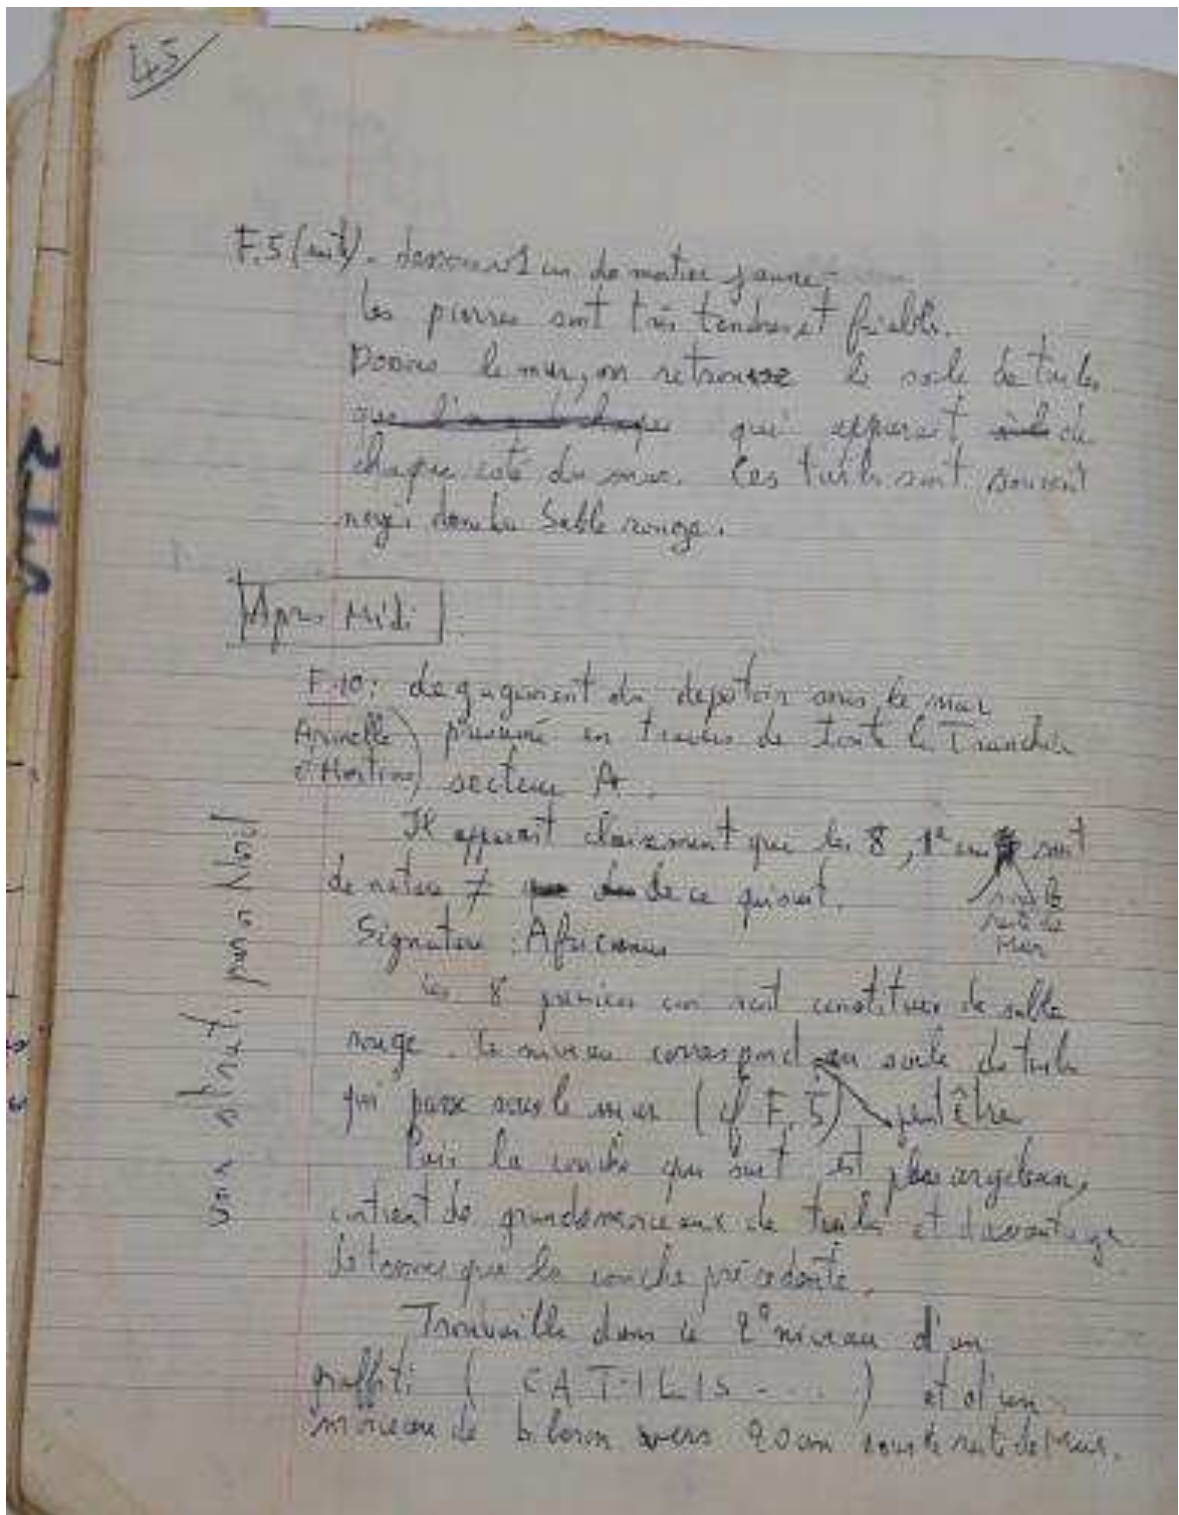 45
F.5 (suite) - dessous 1 cm de mortier jaune.
les pierres sont très tendres et friables.
Dessous le mur, on retrouve le sole de tuiles
qui apparait de
chaque coté du mur. Ces tuiles sont souvent
noyés dans du sable rouge.
Après Midi
F.10: degagement du depotoir sous le mur
Armelle présumé en travers de toute la Tranchée
secteur A.
Il apparait clairement que les 8, 1e cm sont
de nature ≠ de ce qui suit.
sous le
reste de
Mur
Signature : Africanus
les 8 premiers cm sont constitués de sable
rouge. Ce niveau correspond au sole de tuile
qui passe sous le mur (cf F.5) peut être
Puis la couche qui suit est plus argileuse,
contient de grands morceaux de tuiles et davantage
de tessons que la couche précédente.
Trouvaille dans le 2e niveau d'un
graffiti ( CATILIS - ... ) et d'un
morceau de vers 20 cm sous le reste de Mur.
Voir strat. paroi Nord